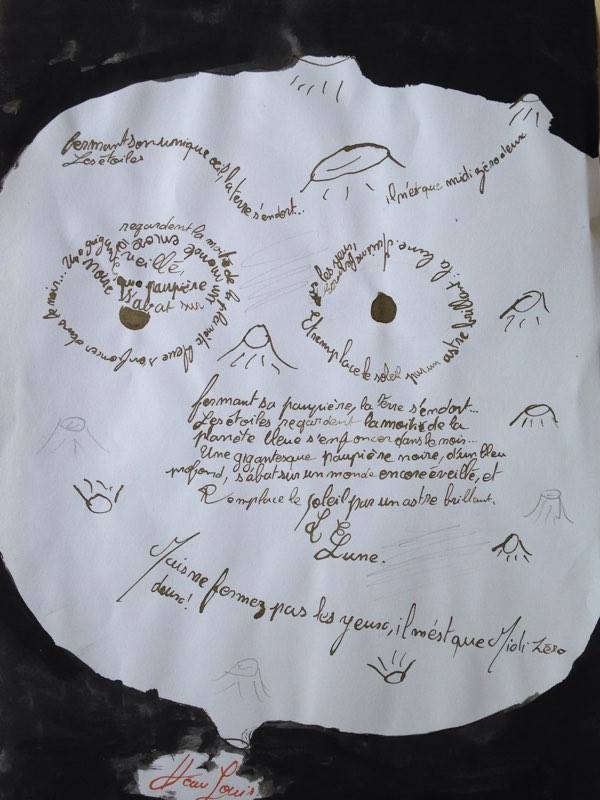 fermant son unique oeil, la terre s'endort...
Les étoiles
il n'est que midi zéro deux
regardent la moitié de la planète bleue s'enfoncer dans le noir... Une gigantesque
paupière
noire
s'abat sur
un monde encore
éveillé,
Et remplace le soleil par un astre brillant : la lune d'
les yeux,
fermant sa paupière, la Terre s'endort...
Les étoiles regardent la moitié de la
planète bleue s'enfoncer dans le noir...
Une gigantesque paupière noire, d'un bleu
profond, s'abat sur un monde encore éveillé, et
Remplace le soleil par un astre brillant.
Lune.
Mais ne fermez pas les yeux, il n'est que Midi zéro
deux!
Jean Louis